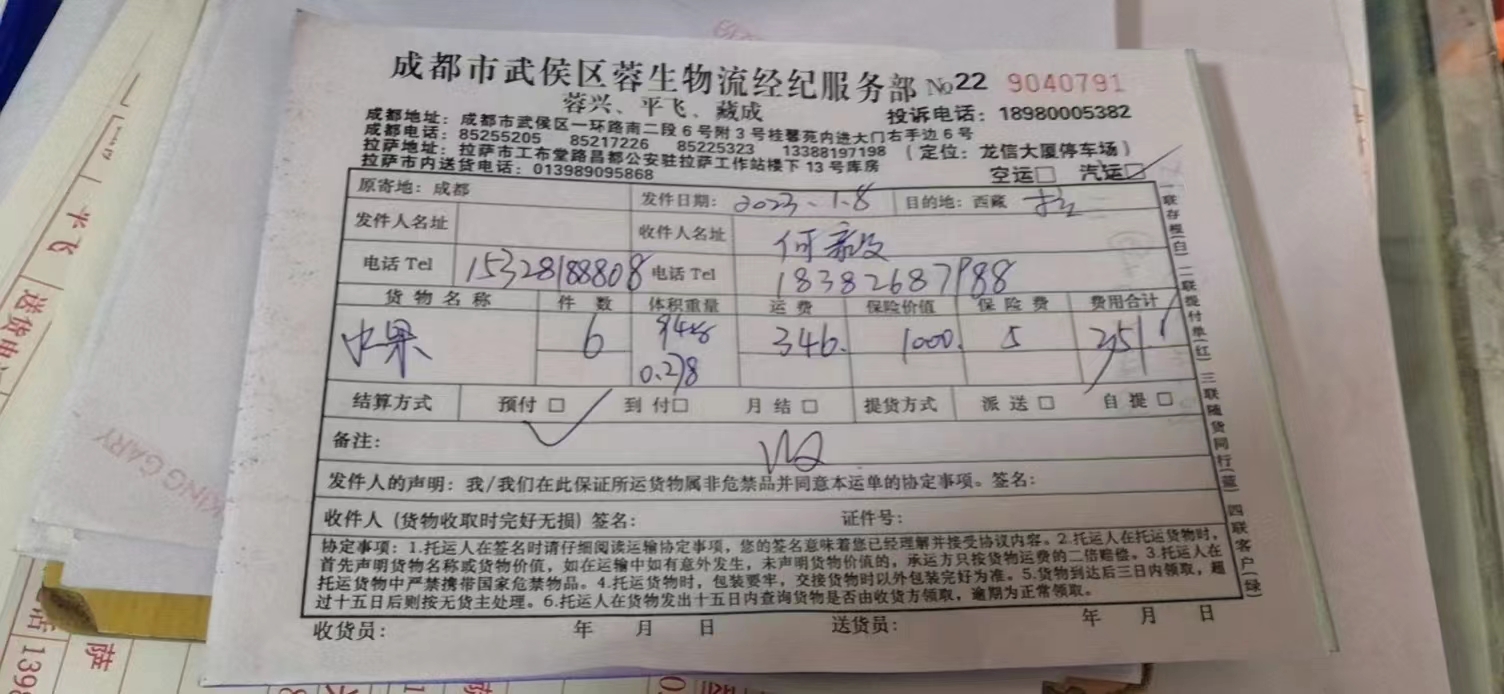 成都市武侯区蓉生物流经纪服务部 No22 9040791
蓉兴、平飞、藏成 投诉电话：18980005382
成都地址：成都市武侯区一环路南二段6号附3号桂馨苑内进大门右手边6号
成都电话：85255205 85217226 85225323 13388197198（定位：龙信大厦停车场）
拉萨地址：拉萨市工布堂路昌都公安驻拉萨工作站楼下13号库房
拉萨市内送货电话：013989095868 空运□ 汽运☑
原寄地：成都 发件日期：2023-1.8 目的地：西藏
发件人名址 收件人名址 何
电话 Tel 15328188808 电话 Tel 18382687988
货物名称 件数 体积重量 运费 保险价值 保险费 费用合计
水果 6 94kg 346. 1000. 5 351
0.278
结算方式 预付□ ✓ 到付□ 月结□ 提货方式 派送□ 自提□
备注：
发件人的声明：我/我们在此保证所运货物属非危禁品并同意本运单的协定事项。签名：
收件人（货物收取时完好无损）签名： 证件号：
协定事项：1.托运人在签名时请仔细阅读运输协定事项，您的签名意味着您已经理解并接受协议内容。2.托运人在托运货物时，
首先声明货物名称或货物价值，如在运输中如有意外发生，未声明货物价值的，承运方只按货物运费的二倍赔偿。3.托运人在
托运货物中严禁携带国家危禁物品。4.托运货物时，包装要牢，交接货物时以外包装完好为准。5.货物到达后三日内领取，超
过十五日后则按无货主处理。6.托运人在货物发出十五日内查询货物是否由收货方领取，逾期为正常领取。
收货员： 年 月 日 送货员： 年 月 日
一联存根(白) 二联提付单(红) 三联随货同行(蓝) 四联客户(绿)
平飞
送货电
KING GARY
话 1398
萨